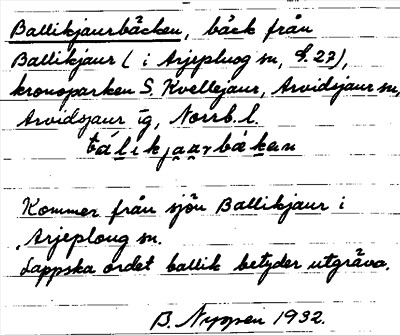 Ballikjaurbäcken, bäck från
Ballikjaur (i Arjeplog sn, s. 27),
kronoparken S. Kvellejaur, Arvidsjaur sn,
Arvidsjaur tg, Norrb. l.
bálikjaarbäkən
Kommer från sjön Ballikjaur i
Arjeploug sn.
Lappska ordet ballik betyder utgräva.
B. Nyspen 1932.